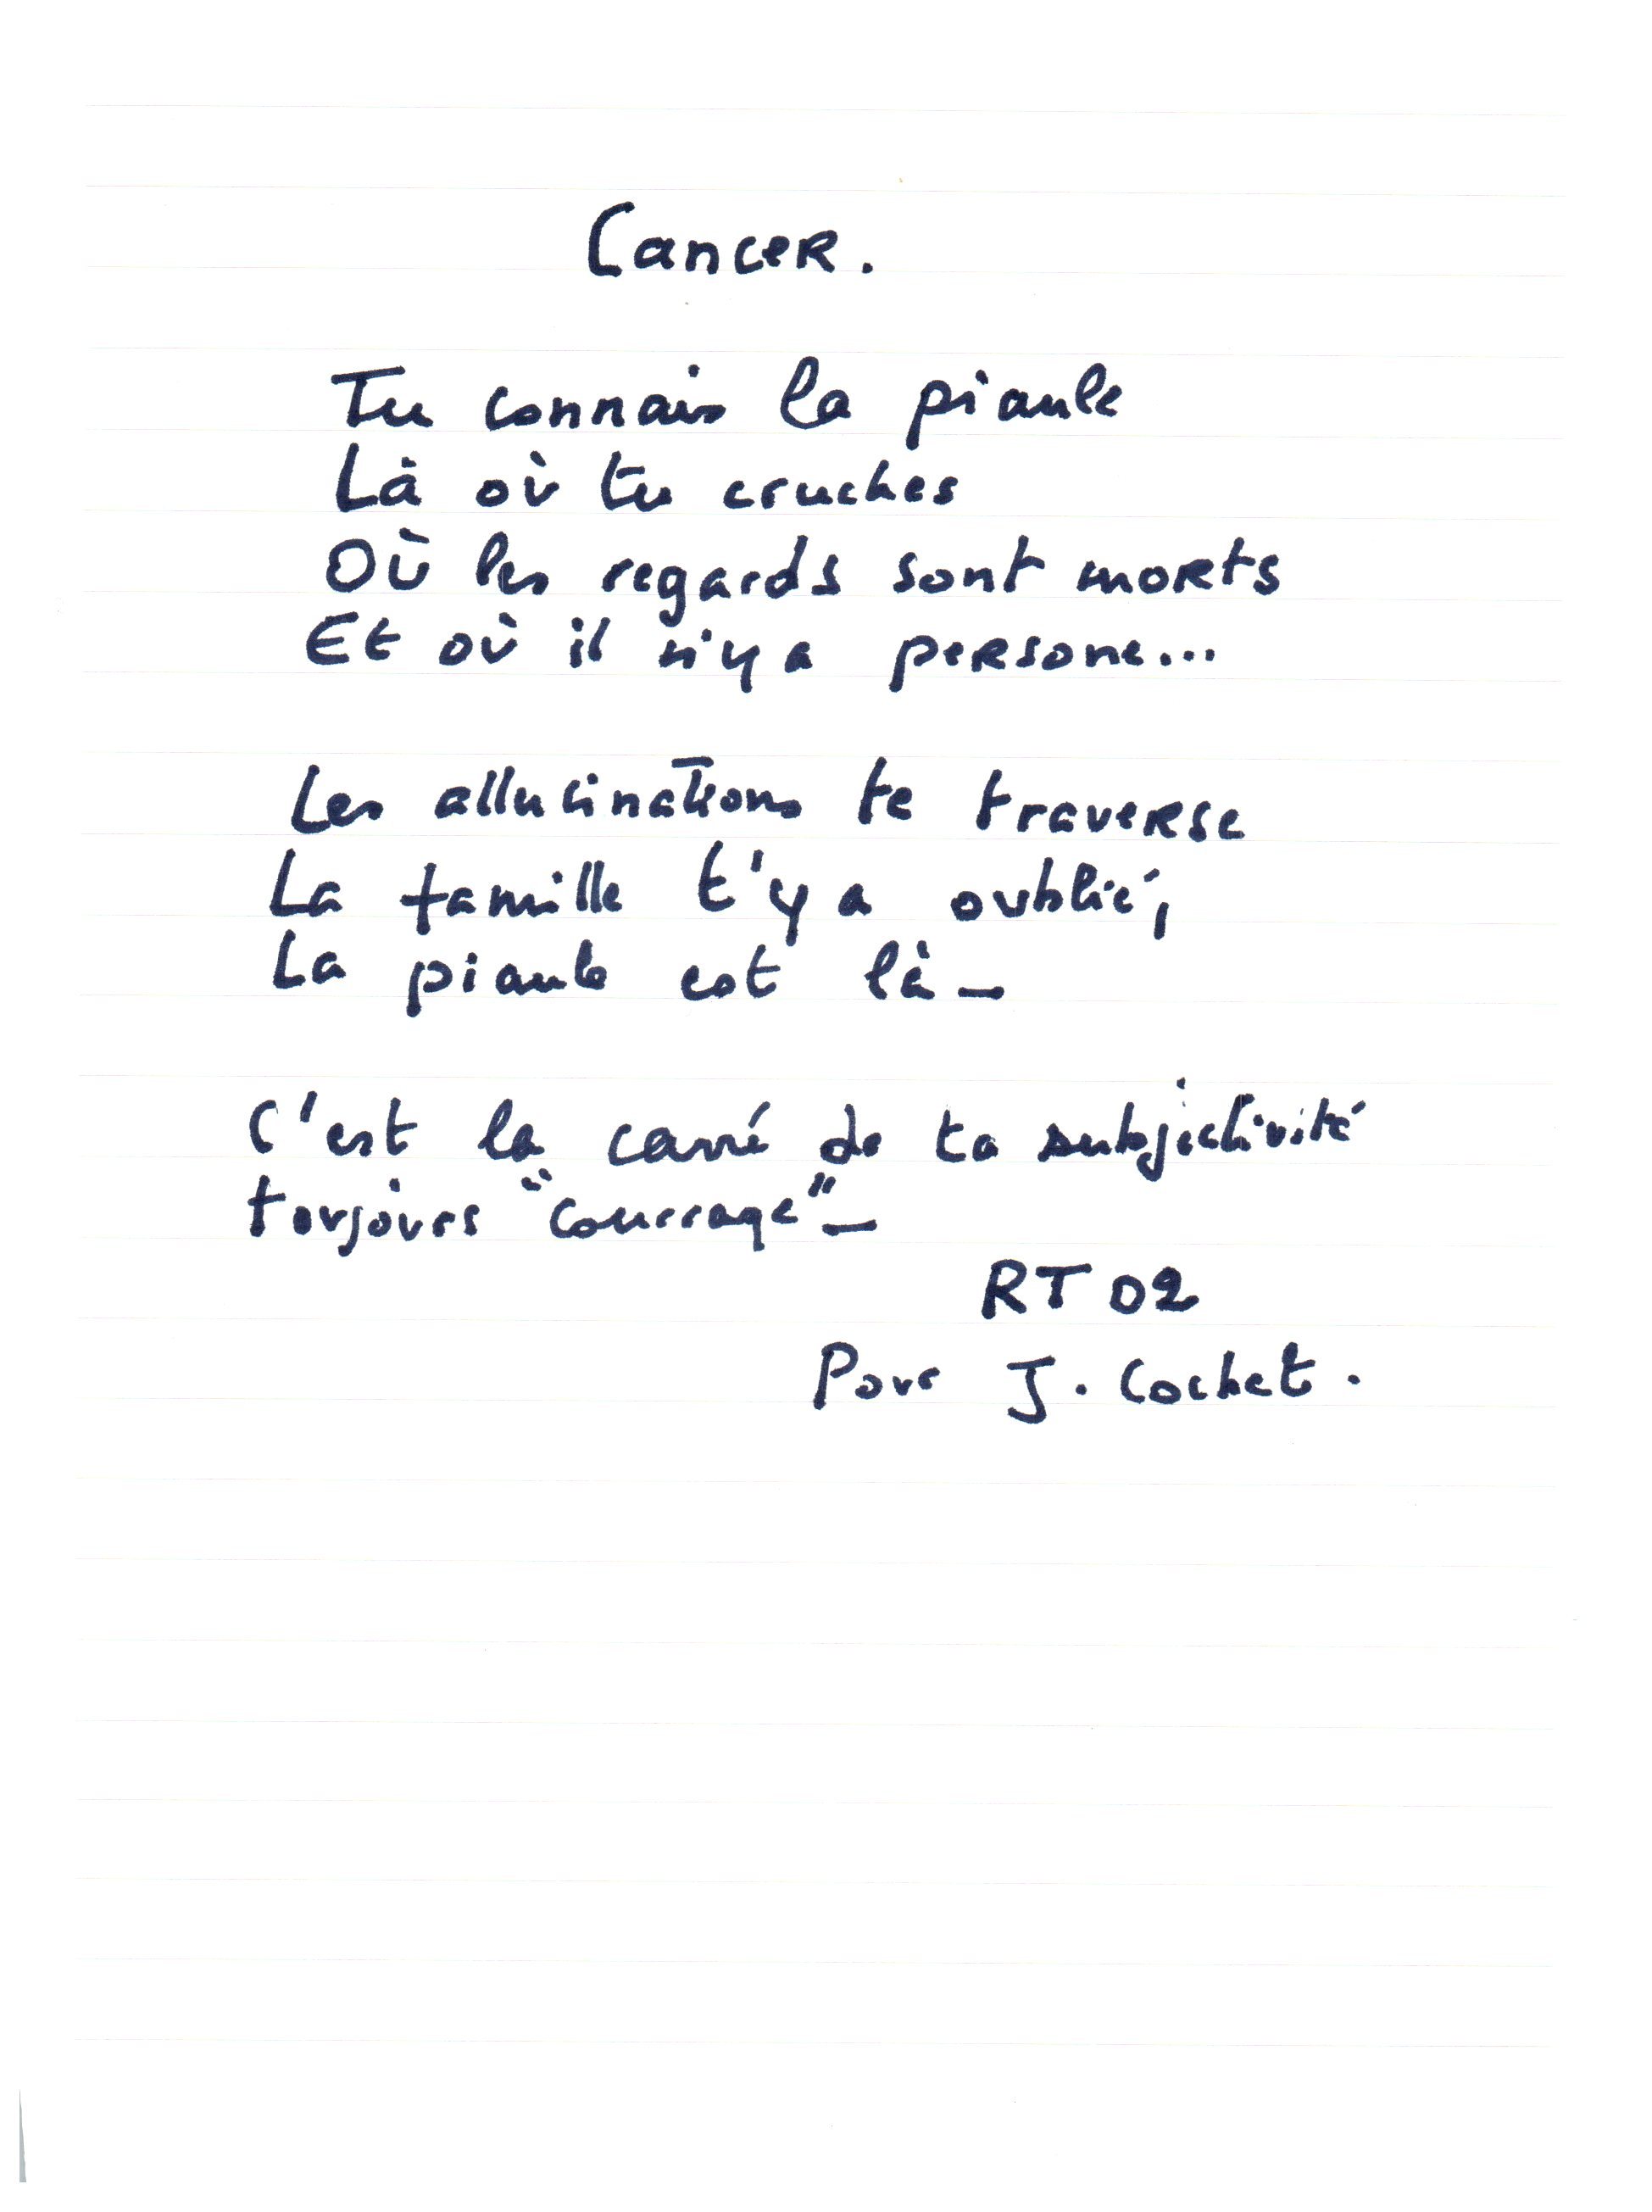 Cancer.
Tu connais la piaule
Là où tu cruches
Où les regards sont morts
Et où il n'y a persone...
Les allucinations te traverse
La famille t'y a oublié,
La piaule est là_
C'est la carré de ta subjectivité
toujours "courrage"_
RT 02
Pour J. Cochet.